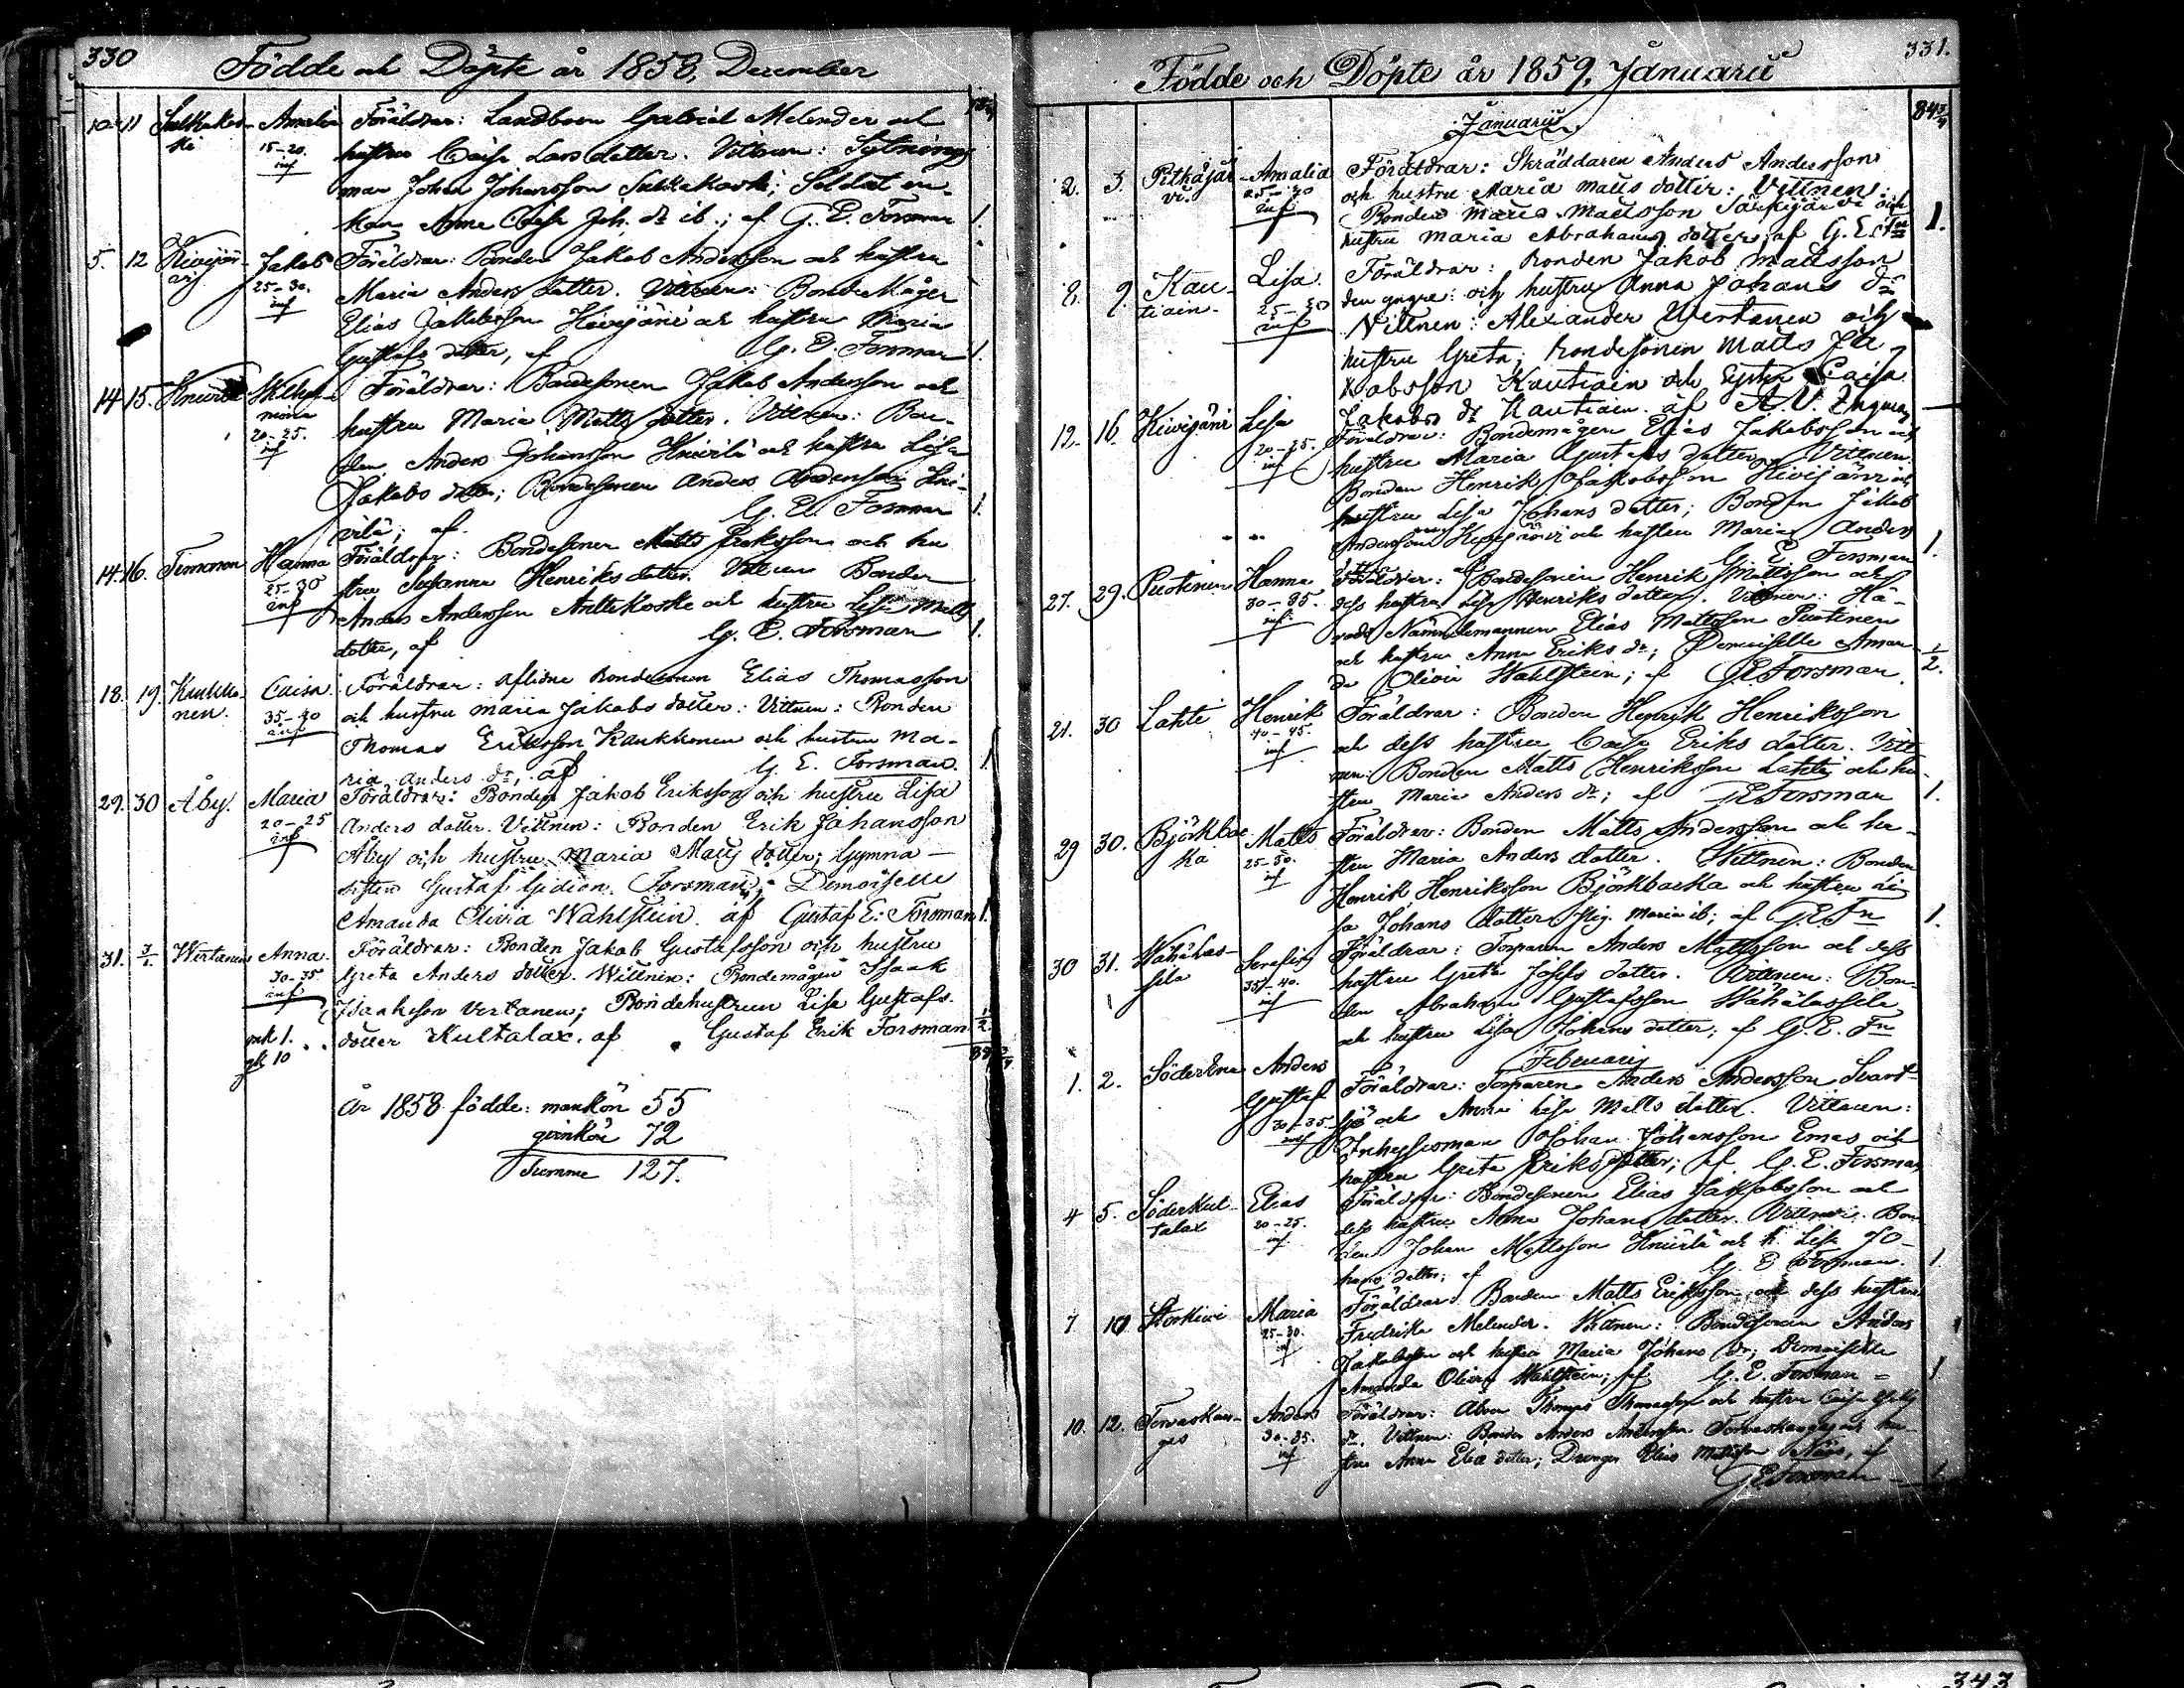 330
Födde och Döpte år 1858, December
10 11 Amalia Föräldrar: Landboen Gabriel Melender och
15-20. hustru Caisa Lars dotter. Vittnen:
inf man Johan Johansson; Soldat en-
kan Anna Caisa Joh. dr ib.; af G. E. Forsman 1.
5. 12 Kivijär- Jakob Föräldrar: Bonden Jakob Andersson och hustru
vi 25-30. Maria Anders dotter. Vittnen: Bonde Mågen
inf Elias Jakobsson Kivijärvi och hustru Maria
Gustafs dotter, af G. E. Forsman 1.
14 15. Knivilä Wilhel- Föräldrar: Bondesonen Jakob Andersson och
mina hustru Maria Matts dotter. Vittnen: Bon-
20-25. den Anders Johansson Knivilä och hustru Lisa
inf Jakobs dotter; Bondesonen Anders Andersson Kni-
vilä; af G. E. Forsman 1.
14. 16. Timonen Hanna Föräldrar: Bondesonen Matts Eriksson och hu
25-30 stru Susanna Henriks dotter. Vittnen Bonden
inf Anders Andersson Anttikoski och hustru Lisa Matts
dotter, af G. E. Forsman 1.
18. 19. Kaukko- Caisa. Föräldrar: aflidne Bondesonen Elias Thomasson
nen. 35-40 och hustru Maria Jakobs dotter: Vittnen: Bonden
inf Thomas Eriksson Kaukkonen och hustru Ma-
ria Anders dr, af G. E. Forsman. 1
29. 30 Åby. Maria Föräldrar: Bonden Jakob Eriksson och hustru Lisa
20-25 Anders dotter. Vittnen: Bonden Erik Johansson
inf Åby och hustru Maria Matts dotter; Gymna-
sisten Gustaf Gideon Forsman; Demoiselle
Amanda Olivia Wahlstein. af Gustaf E. Forsman 1.
31. 1/1. Wertanen Anna. Föräldrar: Bonden Jakob Gustafsson och hustru
30-35 Greta Anders dotter. Wittnen: Bondemågen Isaak
inf Isaaksson Vertanen; Bondehustrun Lisa Gustafs-
mk 1. dotter Kultalax. af Gustaf Erik Forsman 1/2
qk 10
År 1858 födde: mankön 55
qvinkön 72
Summa 127.
331.
Födde och Döpte år 1859, Januarii
84 3/4
Januarii
2. 3. Pitkäjär- Amalia Föräldrar: Skräddaren Anders Andersson
vi. 25-30 och hustru Maria Matts dotter: Vittnen:
inf Bonden Matts Mattsson Särkijärvi och
hustru Maria Abrahams dotter; af G. E. Fon 1.
8. 9. Kau- Lisa. Föräldrar: Bonden Jakob Mattsson
tiain. 25-30 den yngre: och hustru Anna Johans dr
inf Vittnen: Alexander Wertanen och
hustru Greta; Bondesonen Matts Ja-
kobsson Kautiain och Syster Caisa
Jakobs dr Kautiain. af A. V.
12. 16. Kivijärvi Lisa Föräldrar: Bondemågen Elias Jakobsson och
20-25. hustru Maria Gustafs dotter. Vittnen.
inf Bonden Henrik Jakobsson Kivijärvi och
hustru Lisa Johans dotter; Bonden Jakob
Andersson Kivijärvi och hustru Maria Anders 1.
dotter af G. E. Forsman
27. 29. Puotinen Hanna Föräldrar: Bondesonen Henrik Mattsson och
30-35. dess hustru Lisa Henriks dotter. Vittnen: Hä-
inf. rads Nämndemannen Elias Mattsson Puotinen
och hustru Anna Eriks dr; Demoiselle Aman-
da Olivia Wahlstein; af G. E. Forsman. 1/2.
21. 30 Lahti Henrik Föräldrar: Bonden Henrik Henriksson
40-45. och dess hustru Caisa Eriks dotter. Vitt
inf nen: Bonden Matts Henriksson Lahti och hu-
stru Maria Anders dr; af G. E. Forsman 1.
29 30. Björkbac- Matts Föräldrar: Bonden Matts Andersson och hu-
ka 25-30. stru Maria Anders dotter. Wittnen: Bonden
inf Henrik Henriksson Björkbacka och hustru Li-
sa Johans dotter, Pig. Maria ib; af G. E. Fn 1.
30 31. Wähähas- Serafina Föräldrar: Torparen Anders Mattsson och dess
sila 35-40. hustru Greta Josefs dotter. Vittnen: Bon-
inf den Abraham Gustafsson Wähähassila
och hustru Lisa Johans dotter; af G. E. Fn
Februarii
1. 2. Söderena Anders Föräldrar: Torparen Anders Andersson Svart-
Gustaf sjö och Anna Lisa Matts dotter. Vittnen:
30-35 Inhysesman Johan Johansson Emas och
inf hustru Greta Eriks dotter; af G. E. Forsman
4 5. Söderkul- Elias Föräldrar: Bondesonen Elias Jakobsson och
talax 20-25. dess hustru Anna Johans dotter. Vittnen: Bon
inf. den Johan Mattsson Knivilä och h. Lisa Jo-
hans dotter; af G. E. Forsman. 1
7 10 Storkivi Maria Föräldrar: Bonden Matts Eriksson och dess hustru
25-30. Fredrika Melender. Vittnen: Bondesonen Anders
inf Jakobsson och hustru Maria Johans dr; Demoiselle
Amanda Olivia Wahlstein; af G. E. Forsman 1
10. 12. Torvaskan- Anders Föräldrar: Thomas Thomasson och hustru Caisa
gas 30-35. dr. Vittnen: Bonden Anders Andersson Torvaskangas och hu-
inf stru Anna Elia dotter; Drengen Elias Mattsson Näis, af
G. E. Forsman 1.
343